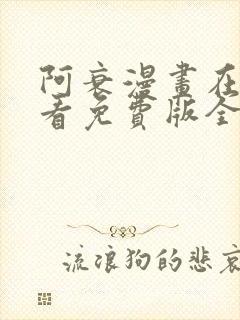 阿衰漫畫在
看免費版全
流浪狗的悲哀